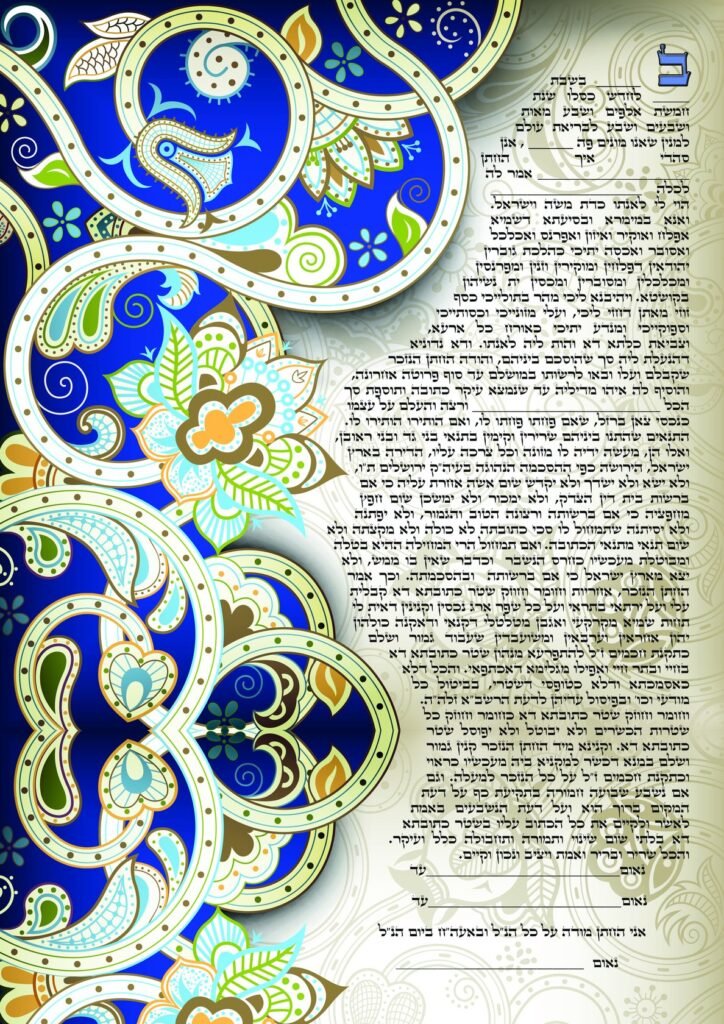 ב
בשבת
לחדש כסלו שנת
חמשת אלפים ושבע מאות
ושבעים ושבע לבריאת עולם
למנין שאנו מונים פה ______, אנן
סהדי איך החתן
__________ אמר לה
לכלה __________
הוי לי לאנתו כדת משה וישראל.
ואנא במימרא ובסיעתא דשמיא
אפלח ואוקיר ואיזון ואפרנס ואכלכל
ואסובר ואכסה יתיכי כהלכת גוברין
יהודאין דפלחין ומוקירין וזנין ומפרנסין
ומכלכלין ומסוברין ומכסין ית נשיהון
בקושטא. ויהיבנא ליכי מהר בתולייכי כסף
זוזי מאתן דחזי ליכי, ועלי מזונייכי וכסותייכי
וספוקייכי ומנדע יתיכי כאורח כל ארעא,
וצביאת כלתא דא והות ליה לאנתו. ודא נדוניא
דהנעלת ליה סך שהוסכם ביניהם, והודה החתן הנזכר
שקבלם ועלו ובאו לרשותו במושלם עד סוף פרוטה אחרונה,
והוסיף לה איהו מדיליה עד שנמצא עיקר כתובה ותוספת סך
הכל __________ ורצה והעלם על עצמו
כנכסי צאן ברזל, שאם פחתו פחתו לו, ואם הותירו הותירו לו.
התנאים שהתנו ביניהם שרירין וקימין כתנאי בני גד ובני ראובן,
ואלו הן, מעשה ידיה לו מזונה וכל צרכה עליו, הדירה בארץ
ישראל, הירושה כפי ההסכמה הנהוגה בעיה"ק ירושלים ת"ו,
ולא ישא ולא ישדך ולא יקדש שום אשה אחרת עליה כי אם
ברשות בית דין הצדק, ולא ימכור ולא ימשכן שום חפץ
מחפציה כי אם ברשותה ורצונה הטוב והגמור, ולא יפתנה
ולא יסיתנה שתמחול לו סכי כתובתה לא כולה ולא מקצתה ולא
שום תנאי מתנאי הכתובה. ואם תמחול הרי המחילה ההיא בטלה
ומבוטלת מעכשיו כחרס הנשבר וכדבר שאין בו ממש, ולא
יצא מארץ ישראל כי אם ברשותה ובהסכמתה. וכך אמר
החתן הנזכר, אחריות וחומר וחוזק שטר כתובתא דא קבלית
עלי ועל ירתאי בתראי ועל כל שפר ארג נכסין וקנינין דאית לי
תחות שמיא מקרקעי ואגבן מטלטלי דקנאי ודאקנה כולהון
יהון אחראין וערבאין ומשועבדין שעבוד גמור ושלם
כתקנת חכמים ז"ל להתפרעא מנהון שטר כתובתא דא
בחיי ובתר חיי ואפילו מגלימא דאכתפאי. והכל דלא
כאסמכתא ודלא כטופסי דשטרי, בביטול כל
מודעי וכו' ובפיסול עדיהן לדעת הרשב"א זלה"ה.
וחומר וחוזק שטר כתובתא דא כחומר וחוזק כל
שטרות הכשרים ולא יבוטל ולא יפוסל שטר
כתובתא דא. וקנינא מיד החתן הנזכר קנין גמור
ושלם במנא דכשר למקניא ביה מעכשיו כראוי
וכתקנת חכמים ז"ל על כל הנזכר למעלה. וגם
אם נשבע שבועה חמורה בתקיעת כף על דעת
המקום ברוך הוא ועל דעת הנשבעים באמת
לאשר ולקיים את כל הכתוב עליו בשטר כתובתא
דא בלתי שום שינוי ותמורה ותחבולה כלל ועיקר.
והכל שריר ובריר ואמת ויציב ונכון וקיים.
נאום __________ עד
נאום __________ עד
אני החתן מודה על כל הנ"ל ובאעה"ח ביום הנ"ל
נאום __________